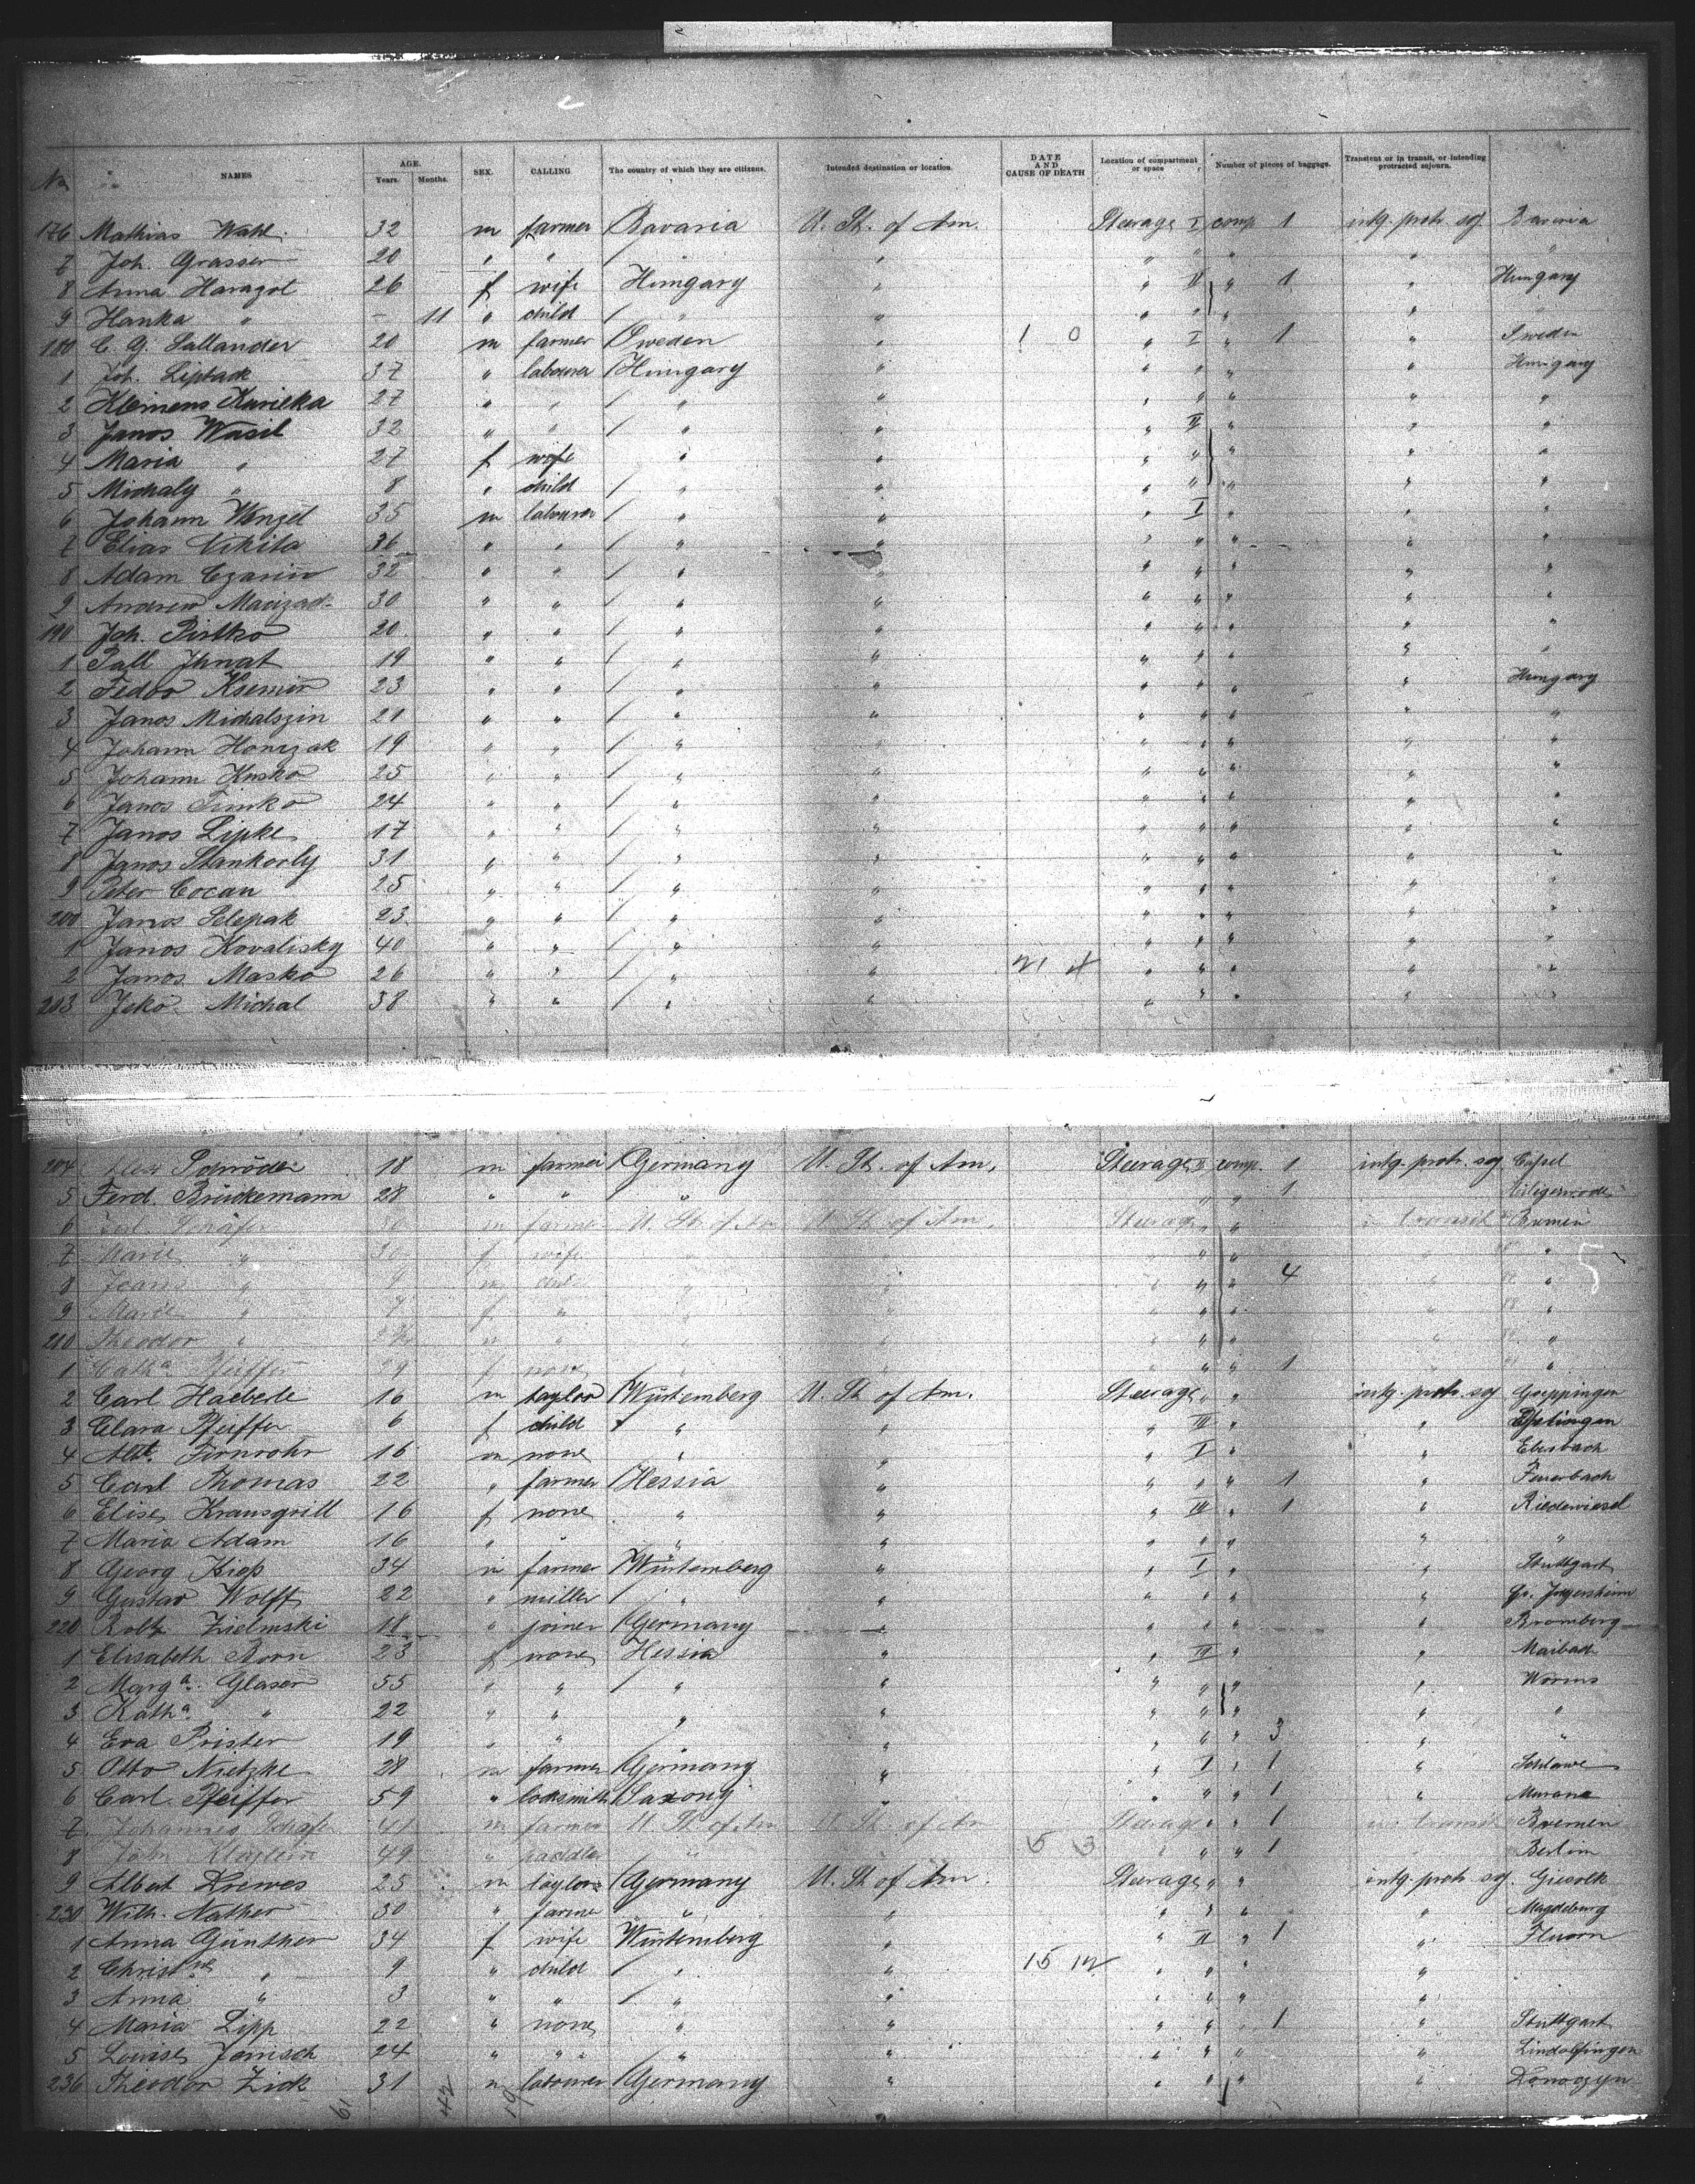 No NAMES AGE. Years. Months. SEX. CALLING The country of which they are citizens. Intended destination or location. DATE AND CAUSE OF DEATH Location of compartment or space Number of pieces of baggage. Transient or in transit, or intending protracted sojourn.
176 Mathias Wahl 32 m farmer Bavaria U. St. of Am. Steerage I comp. 1 intg. protr. soj. Bavaria
7 Joh. Grasser 20 " " " " " " " " "
8 Anna Haragot 26 f wife Hungary " " II " 1 " Hungary
9 Hanka " - 11 " child " " " " " " "
180 C. G. Sallander 20 m farmer Sweden " 1 0 " I " 1 " Sweden
1 Joh. Liptack 37 " labourer Hungary " " " " " Hungary
2 Klemens Kurilka 27 " " " " " " " " "
3 Janos Wasil 32 " " " " " II " " "
4 Maria " 27 f wife " " " " " " "
5 Michaly " 8 " child " " " " " " "
6 Johann Wenzel 35 m labourer " " " I " " "
7 Elias Nikita 36 " " " " " " " " "
8 Adam 32 " " " " " " " " "
9 Andrew 30 " " " " " " " " "
190 Joh. Pistko 20 " " " " " " " " "
1 Pall Ihnat 19 " " " " " " " " "
2 Fedor 23 " " " " " " " " Hungary
3 Janos Michalszin 21 " " " " " " " " "
4 Johann Honczak 19 " " " " " " " " "
5 Johann Kusko 25 " " " " " " " " "
6 Janos Timko 24 " " " " " " " " "
7 Janos Lipke 17 " " " " " " " " "
8 Janos Stankorly 31 " " " " " " " " "
9 Peter Cocan 25 " " " " " " " " "
200 Janos Selepak 23 " " " " " " " " "
1 Janos Kovalisky 40 " " " " " " " " "
2 Janos Masko 26 " " " " 21 4 " " " " "
203 Jeko Michal 38 " " " " " " " " "
204 Alex Schröder 18 m farmer Germany U. St. of Am. Steerage II comp. 1 intg. protr. soj. Cassel
5 Ferd. Brückemann 28 " " " " " 1
6 Schäfer m farmer U. St. of Am. U. St. of Am. Steerage " " in transit Bremen
7 Marie " 30 f wife " " " " " "
8 " 9 m child " " " " 4 " "
9 Marie " 7 f " " " " " " "
210 Theodor " m " " " " " " "
1 Cath.a Pfeiffer 29 f none " " " " 1 " "
2 Carl Haeberle 16 m taylor Würtemberg U. St. of Am. Steerage " " intg. protr. soj. Goeppingen
3 Clara Pfeiffer 6 f child " " " III " " Esslingen
4 Alb. Firnrohr 16 m none " " " I " " Ebersbach
5 Carl Thomas 22 " farmer Hessia " " " " 1 " Feuerbach
6 Elise Krausgrill 16 f none " " " III " 1 "
7 Maria Adam 16 " " " " " " " " "
8 Georg Kiess 34 m farmer Würtemberg " " I " " Stuttgart
9 Gustav Wolff 22 " miller " " " " " "
220 Robt. Zielinski 18 " joiner Germany " " " " " Bromberg
1 Elisabeth Born 23 f none Hessia " " III " " Maibach
2 Marg.a Glaser 55 " " " " " " " " Worms
3 Kath.a " 22 " " " " " " " " "
4 Eva Prister 19 " " " " " " " 3 " "
5 Otto Nietzke 28 m farmer Germany " " I " 1 " Schlawe
6 Carl Pfeiffer 59 " locksmith Saxony " " " " 1 "
7 Johannes Schäfer 41 m farmer U. St. of Am U. St. of Am Steerage " " 1 in transit Bremen
8 John 49 " " " 5 3 " " " 1 Berlin
9 Albert Krewes 25 m taylor Germany U. St. of Am. Steerage " " intg. protr. soj.
230 Wilh. Nather 30 " farmer " " " " " " Magdeburg
1 Anna Günther 34 f wife Würtemberg " " II " 1 " Fluorn
2 Christne " 9 " child " " 15 12 " " " "
3 Anna " 3 " " " " " " " "
4 Maria Lipp 22 " none " " " " " 1 " Stuttgart
5 Louise Jenisch 24 " " " " " " " "
236 Theodor Zick 31 m labourer Germany " " " " "
61 42 19